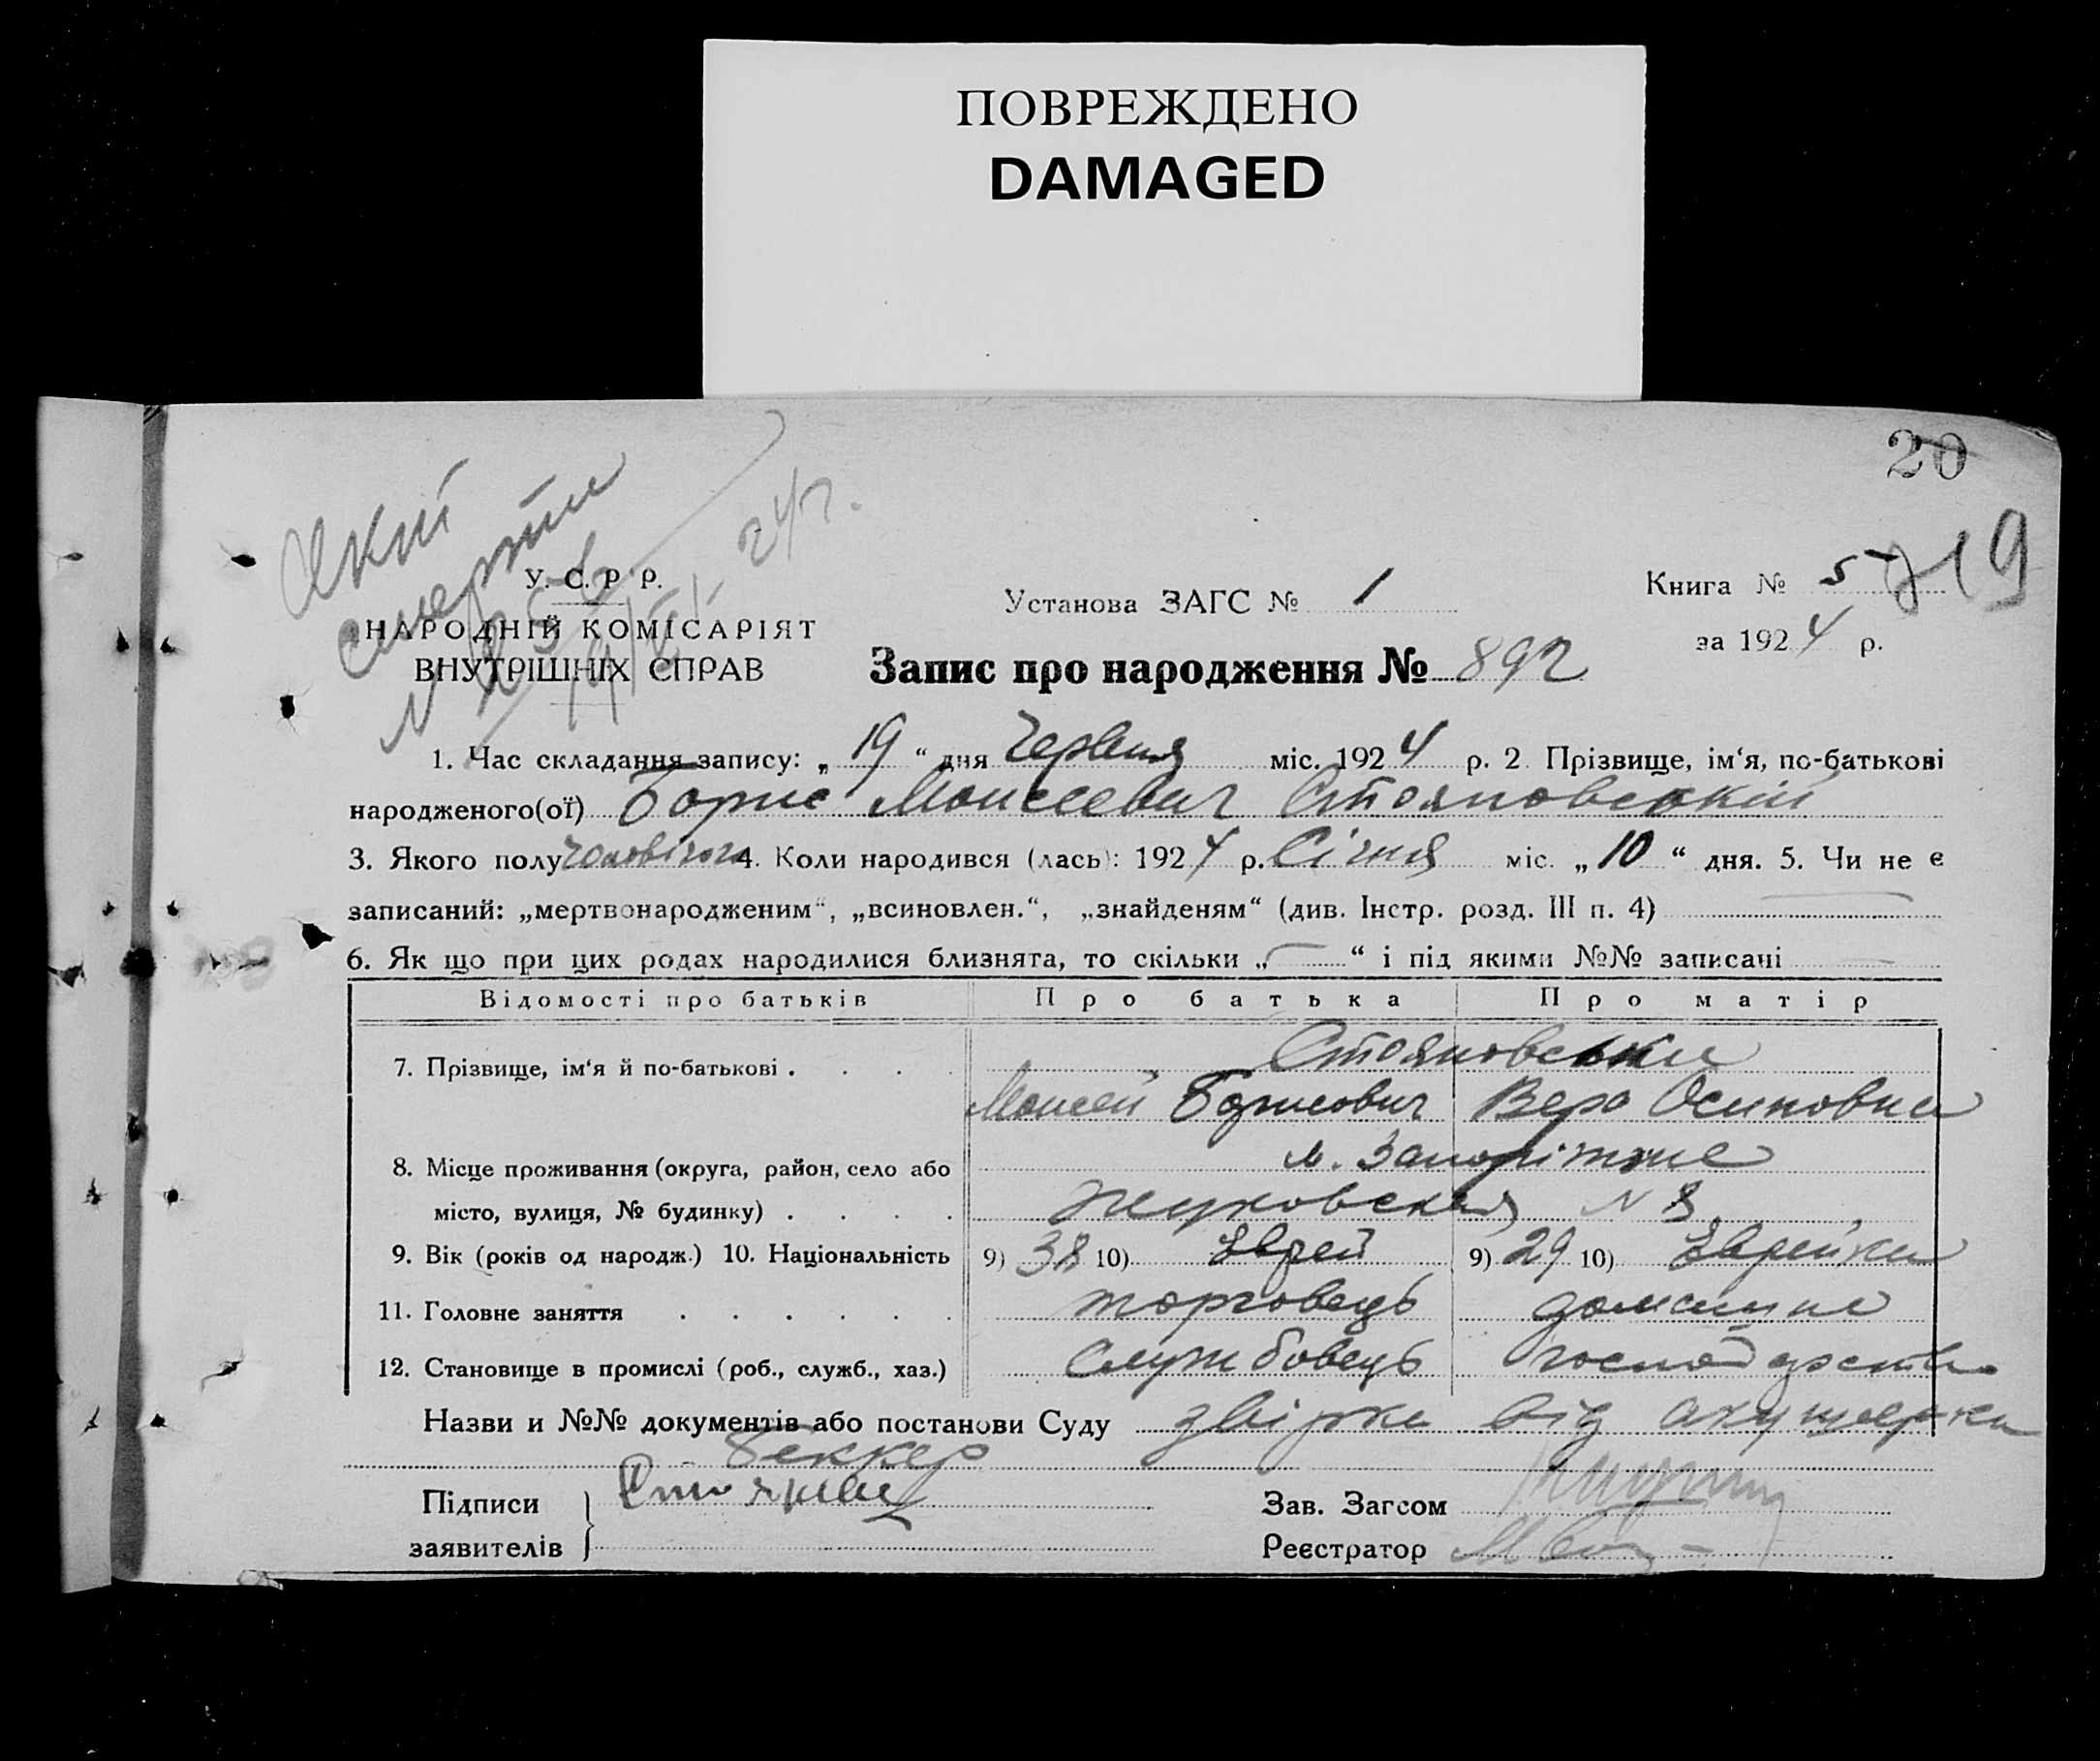 ПОВРЕЖДЕНО
DAMAGED
20
19
смерти
24 г.
У. С. Р. Р.
НАРОДНІЙ КОМІСАРІЯТ
ВНУТРІШНІХ СПРАВ
Установа ЗАГС № 1
Книга № 5
за 1924 р.
Запис про народження № 892
1. Час складання запису: „19“ дня Червня міс. 1924 р. 2. Прізвище, ім‘я, по-батькові
народженого(ої) Борис Моисеевич Стояновський
3. Якого полу чоловічого 4. Коли народився (лась): 1924 р. Січня міс. „10“ дня. 5. Чи не є
записаний: „мертвонародженим“, „всиновлен.“, „знайденям“ (див. Інстр. розд. III п. 4)
6. Як що при цих родах народилися близнята, то скільки „—“ і під якими №№ записані —
Відомості про батьків Про батька Про матір
7. Прізвище, ім‘я й по-батькові . . . . Стояновськи
Моисей Борисович Вера Осиповна
8. Місце проживання (округа, район, село або м. Запоріжже
місто, вулиця, № будинку) . . . . Жуковская N 8
9. Вік (років од народж.) 10. Національність 9) 38 10) Еврей 9) 29 10) Еврейка
11. Головне заняття . . . . . . торговець домашнє
12. Становище в промислі (роб., служб., хаз.) службовець господарство
Назви и №№ документів або постанови Суду від акушерки
Беккер
Підписи
заявителів
Зав. Загсом
Реєстратор